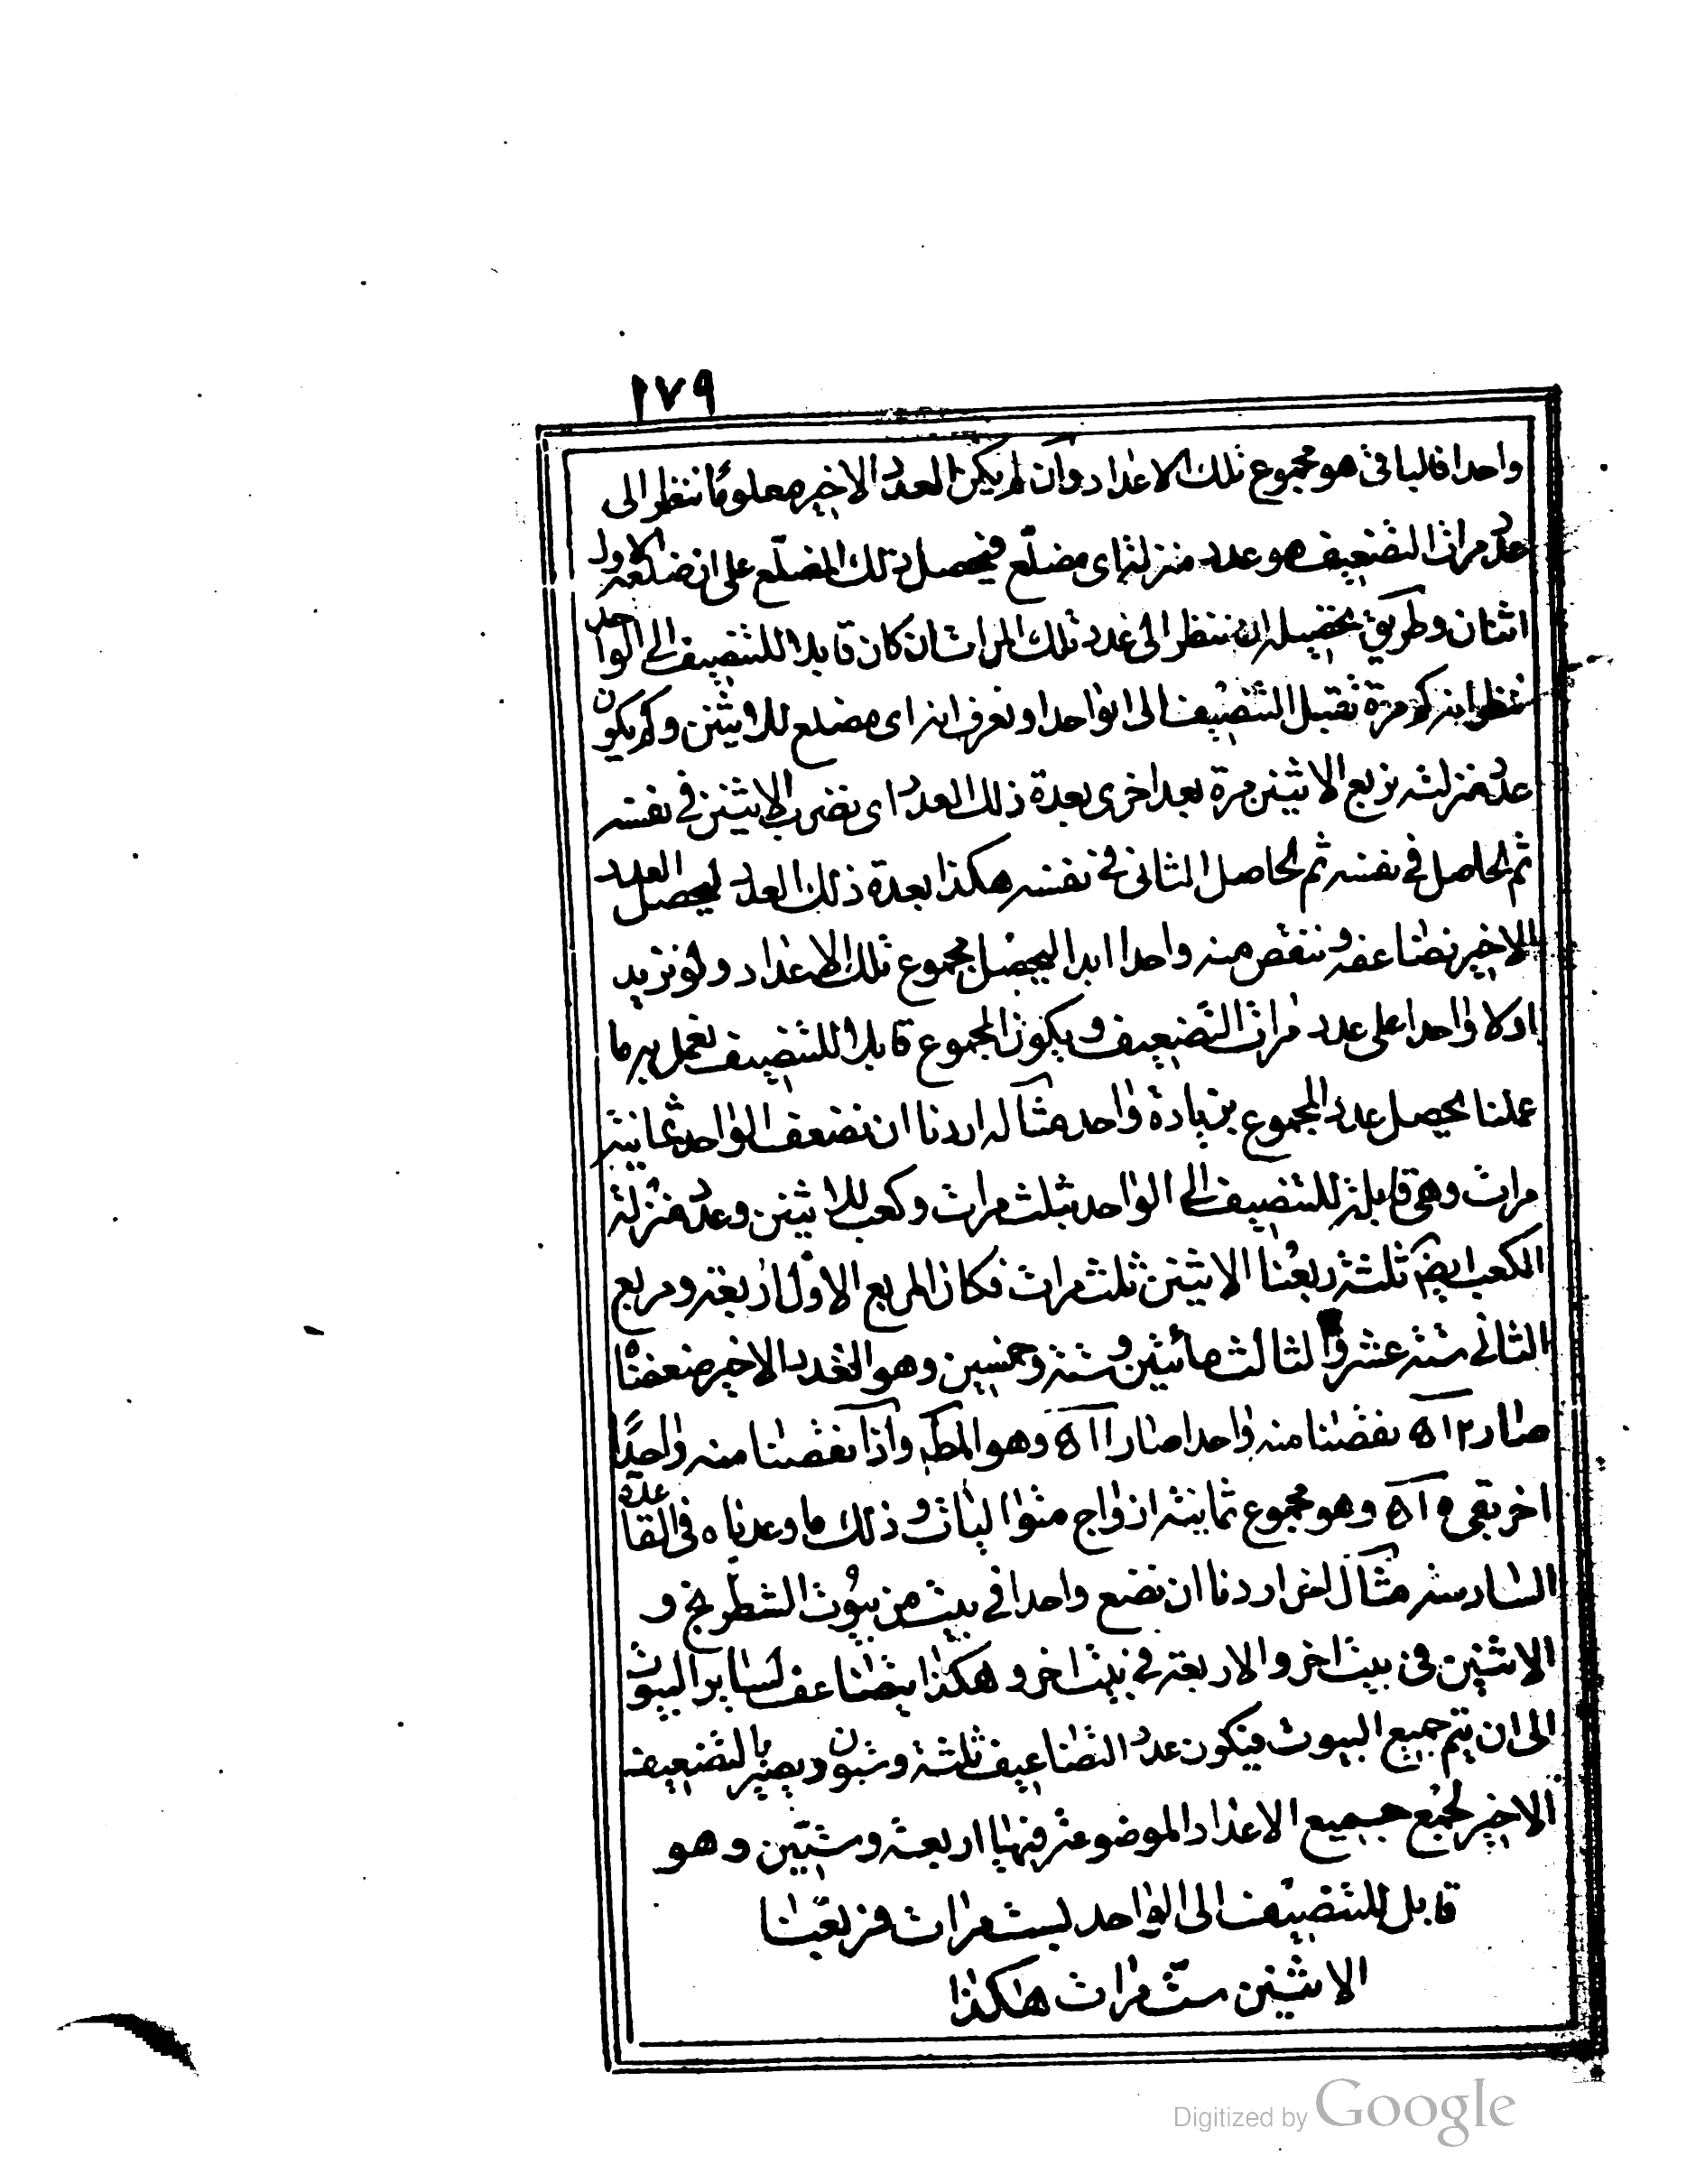 ١٧٩
واحدا فالباقى هو مجموع تلك الاعداد وان لم يكن العدد الاخير معلوما ننظر الى
عدد مرات التضعيف هو عدد منزلة اى مضلّع فيحصل ذلك المضلّع على ان ضلعه الاول
اثنان وطريق تحصيله ان ننظر الى عدد تلك المرات ان كان قابلا للتنصيف الى الواحد
ننظر انه كم مرة تقبل التنصيف الى الواحد او نعرف انه اى مضلع للاثنين وكم يكون
عدد منزلته نربع الاثنين مرة بعد اخرى بعدة ذلك العدد اى نضرب الاثنين فى نفسه
ثم الحاصل فى نفسه ثم الحاصل الثانى فى نفسه هكذا بعدة ذلك العدد ليحصل العدد
الاخير نضاعفه وننقص منه واحدا ابدا ليحصل مجموع تلك الاعداد ولو نزيد
اولا واحدا على عدد مرات التضعيف ويكون المجموع قابلا للتنصيف نعمل به ما
عملنا يحصل عدد المجموع بزيادة واحد مثاله اردنا ان نضعف الواحد ثمانية
مرات وهى قابلة للتنصيف الى الواحد بثلث مرات وكعب للاثنين وعدد منزلة
المكعب ايضم ثلثة ربعنا الاثنين ثلث مرات فكان المربع الاول اربعة ومربع
الثانى ستة عشر والثالث مائتين وستة وخمسين وهو العدد الاخير ضعفناه
صار ٥١٢ نقصنا منه واحدا صار ٥١١ وهو المط واذا نقصنا منه واحدًا
اخر بقى ٥١٠ وهو مجموع ثمانية ازواج متواليات وذلك ما وعدناه فى القاعدة
السادسة مثال اخر اردنا ان نضع واحدا فى بيت من بيوت الشطرنج و
الاثنين فى بيت اخر والاربعة فى بيت اخر وهكذا يتضاعف لساير البيوت
الى ان يتم جميع البيوت فيكون عدد التضاعيف ثلثة وستون ويصير بالتضعيف
الاخير لجمع جميع الاعداد الموضوعة فيها اربعة وستين وهو
قابل للتنصيف الى الواحد بست مرات فربعنا
الاثنين ست مرات هكذا
Digitized by Google